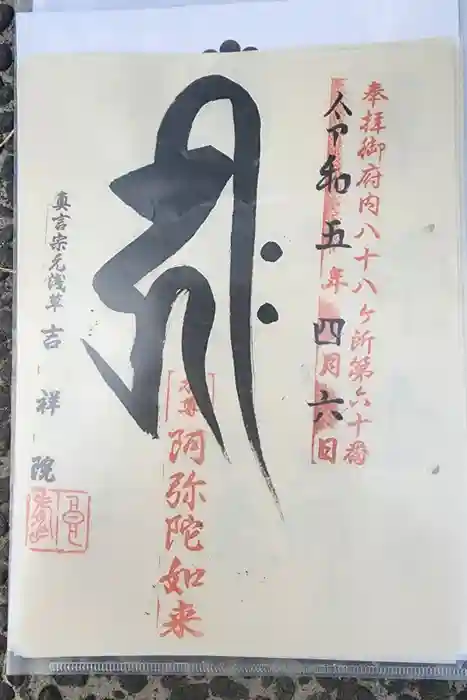 奉拝御府内八十八ヶ所第六十番
令和五年四月六日
𑖮𑖿𑖨𑖱𑖾
本尊
阿弥陀如来
真言宗元浅草吉祥院